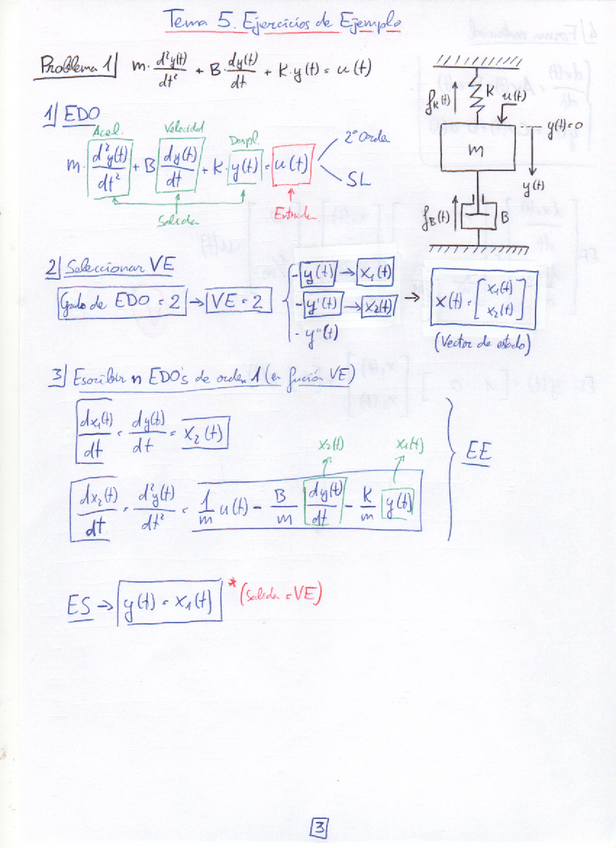 Tema 5. Ejercicios de Ejemplo
Problema 1| m·d²y(t)/dt² + B·dy(t)/dt + K·y(t) = u(t)
1| EDO
Acel. Velocidad Despl.
m·d²y(t)/dt² + B dy(t)/dt + K·y(t) = u(t)
2º Orden
SL
Salida Entrada
fK(t) K u(t)
y(t)=0
m
y(t)
fB(t) B
2| Seleccionar VE
Grado de EDO = 2 → VE = 2
- y(t) → x1(t)
- y'(t) → x2(t)
- y''(t)
→ x(t) = [x1(t) x2(t)]
(Vector de estado)
3| Escribir n EDO's de orden 1 (en función VE)
dx1(t)/dt = dy(t)/dt = x2(t)
x2(t) x1(t)
dx2(t)/dt = d²y(t)/dt² = 1/m u(t) - B/m dy(t)/dt - K/m y(t)
EE
ES → y(t) = x1(t) * (salida = VE)
3